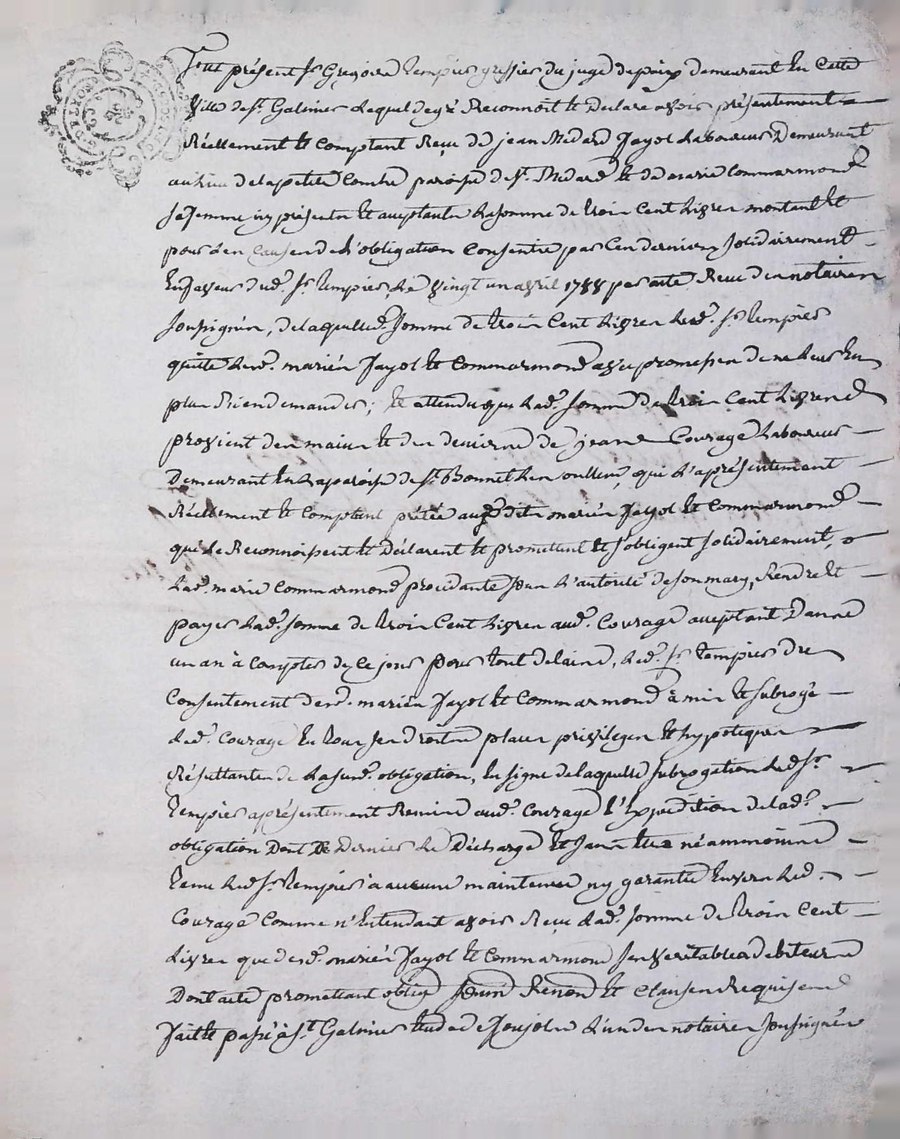 fut présent Sr Grégoire tempier greffier du juge de paix demeurant En Cette
ville de St Galmier Lequel de gré Reconnoit Et Déclare avoir présentement
Réellement Et Comptant Reçu de jean Médard fayol Laboureur Demeurant
au lieu de la petite Combe paroisse de St Médard Et de marie Commarmond
sa femme icy présents Et acceptants La somme de trois Cent Livres montant Et
pour Les Causes de L'obligation Consentie par Ces derniers solidairement
En faveur dud. Sr tempier, Le vingt un avril 1788 par acte Reçu des notaires
soussignés, de laquelled. somme de trois Cent Livres Led. Sr tempier
quitte Lesd. mariés fayol Et Commarmond avec promesse de ne Leur En
plus Rien demander; Et attendu que Lad. somme de trois Cent Livres
provient des mains Et des deniers de jean Courage Laboureur
Demeurant En La paroisse de St Bonnet Les oulles, qui L'a présentement
Réellement Et Comptant prêtée auxdits mariés fayol Et Commarmond
qui Le Reconnoissent Et Déclarent Et promettent Et s'obligent solidairement,
Lad. marie Commarmond procédante sous L'autorité de son mary, Rendre Et
payer Lad. somme de trois Cent Livres aud. Courage acceptant Dans
un an à Compter de Ce jour pour tout délais, Led. Sr tempier du
Consentement desd. mariés fayol Et Commarmond a mis Et subrogé
Led. Courage En tous ses droits places privilèges Et hypotèques
Résultantes de La susd. obligation, En signe de laquelle subrogation Led. Sr
tempier a présentement Remis aud. Courage L'Expédition de lad.
obligation Dont Ce Dernier Le Décharge Et sans Etre néammoins
tenu Led. Sr tempier à aucune maintenue ny garantie Envers Led.
Courage Comme n'Entendant avoir Reçu Lad. somme de trois Cent
Livres que desd. mariés fayol Et Commarmond ses véritables débiteurs
Dont acte promettant obligé soumis Renoncé Et Clauses Requises
fait Et passé à St Galmier Etude de L'un des notaires soussignés